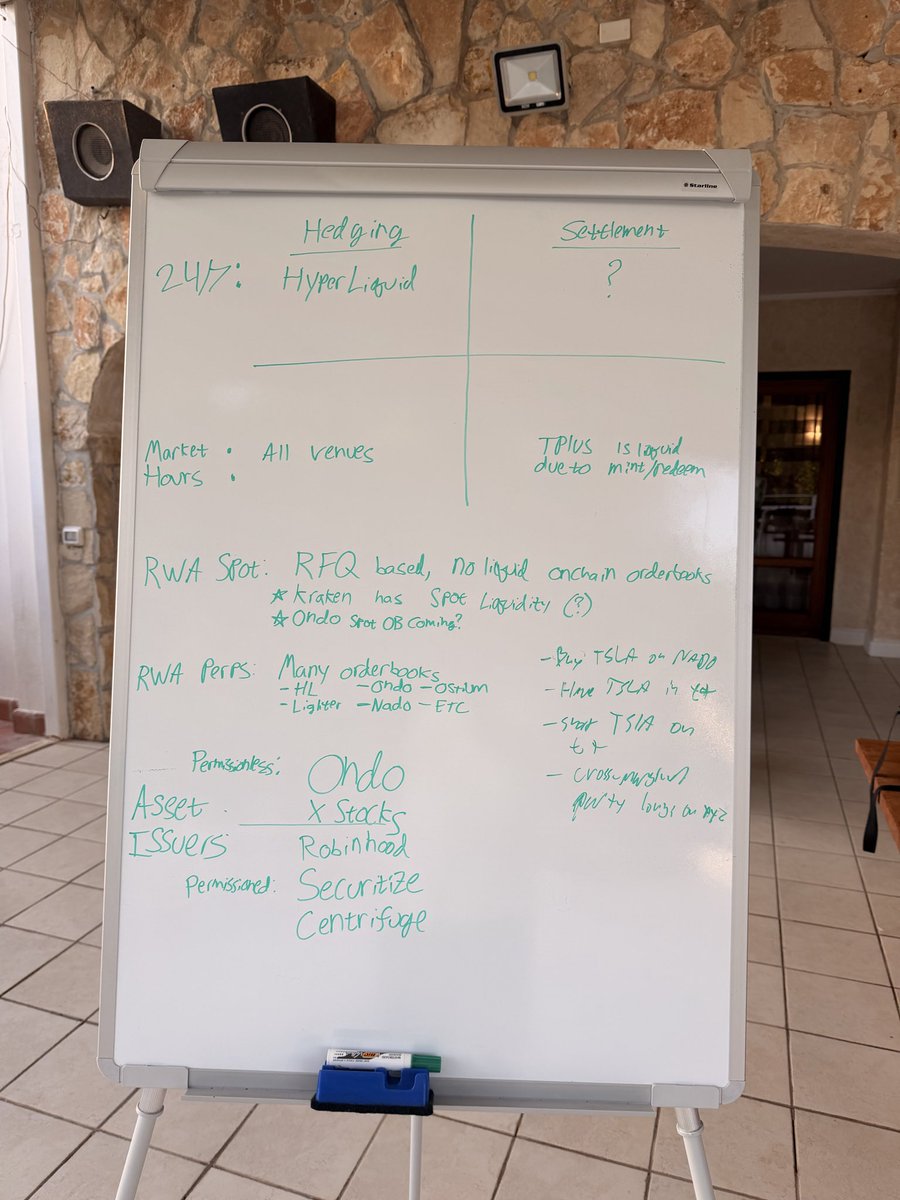 Starline
Hedging
Settlement
24/7: HyperLiquid
?
Market : All venues
Hours
TPlus is liquid
due to mint/redeem
RWA Spot: RFQ based, no liquid onchain orderbooks
* Kraken has Spot Liquidity (?)
* Ondo Spot OB Coming?
RWA Perps: Many orderbooks
- HL - Ondo - Ostium
- Lighter - Nado - ETC
- Buy TSLA on NADO
- Have TSLA in t+
- short TSLA on
t+
- cross-margin
longs on xyz
Permissionless: Ondo
Asset X Stocks
Issuers Robinhood
Permissioned: Securitize
Centrifuge